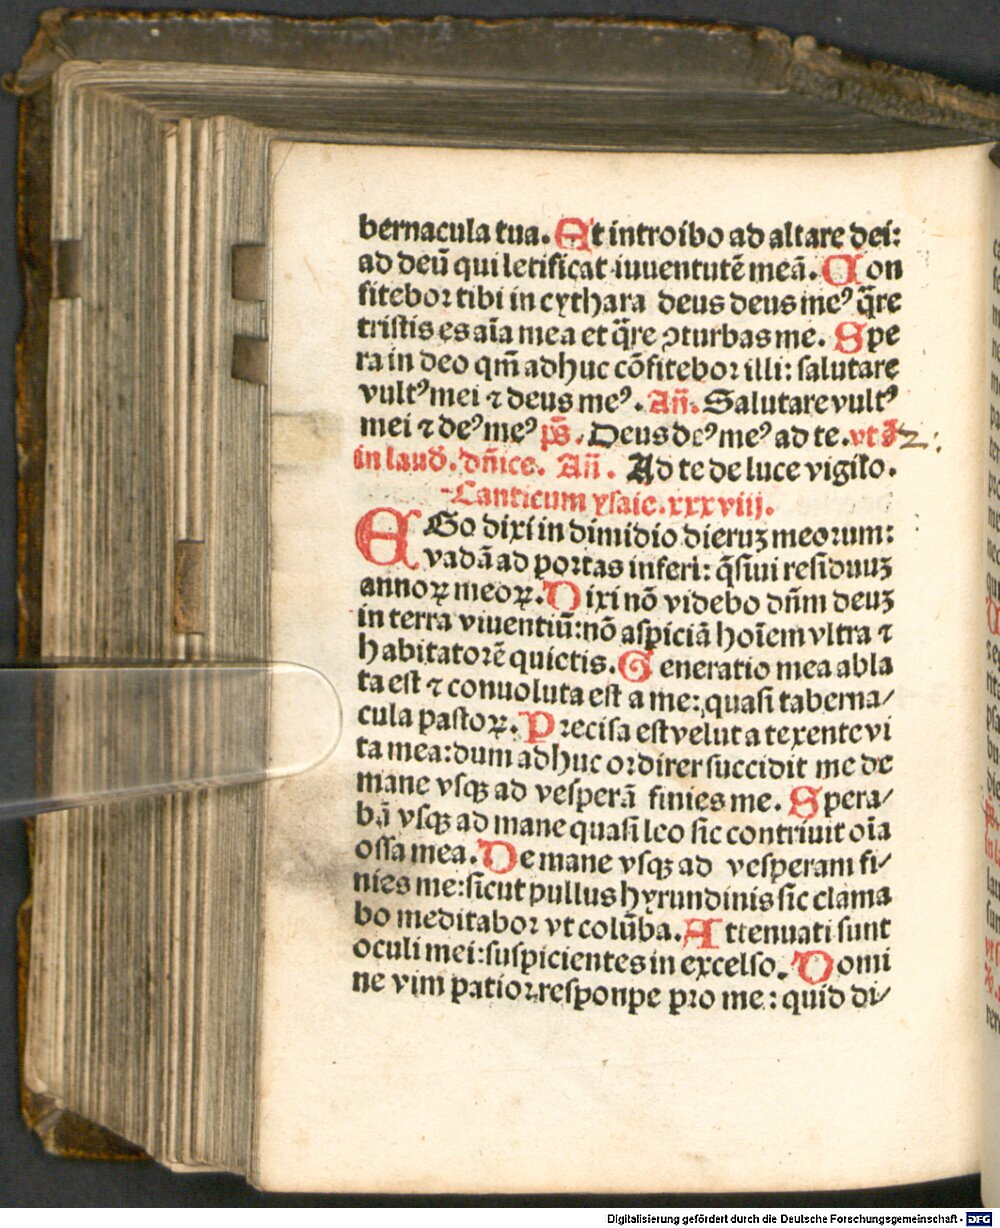 bernacula tua. Et introibo ad altare dei:
ad deū qui letificat iuuentutē meā. Con
fitebor tibi in cythara deus deus meꝰ q̄re
tristis es aīa mea et q̄re ꝯturbas me. Spe
ra in deo qm̄ adhuc cōfitebor illi: salutare
vultꝰ mei ⁊ deus meꝰ. Añ. Salutare vultꝰ
mei ⁊ deꝰ meꝰ p̄s. Deus deꝰ meꝰ ad te. vt
in laud. dn̄ice. Añ. Ad te de luce vigilo.
Canticum ysaie. xxxviij.
EGo dixi in dimidio dieruȝ meorum:
vadā ad portas inferi: q̄siui residuuȝ
annoꝝ meoꝝ. Dixi nō videbo dn̄m deuȝ
in terra viuentiū: nō aspiciā hoīem vltra ⁊
habitatorē quietis. Generatio mea abla
ta est ⁊ conuoluta est a me: quasi taberna/
cula pastoꝝ. Precisa est velut a texente vi
ta mea: dum adhuc ordirer succidit me de
mane vsqꝫ ad vesperā finies me. Spera/
bā vsqꝫ ad mane quasi leo sic contriuit oīa
ossa mea. De mane vsqꝫ ad vesperam fi/
nies me: sicut pullus hyrundinis sic clama
bo meditabor vt colūba. Attenuati sunt
oculi mei: suspicientes in excelso. Domi
ne vim patior responpe pro me: quid di/
Digitalisierung gefördert durch die Deutsche Forschungsgemeinschaft - DFG